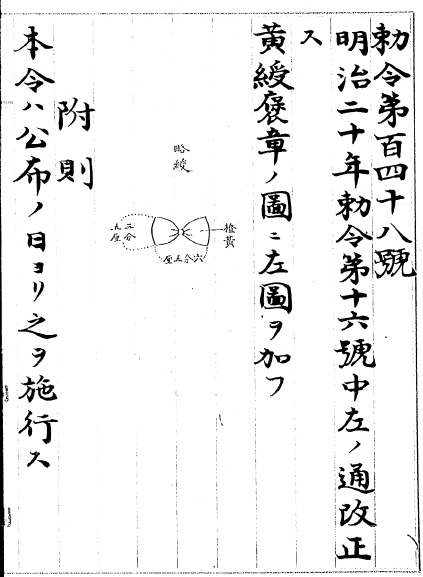 勅令第百四十八號
明治二十年勅令第十六號中左ノ通改正
ス
黃綬褒章ノ圖ニ左圖ヲ加フ
略綬
橙黃
六分五厘
三分五厘
附則
本令ハ公布ノ日ヨリ之ヲ施行ス